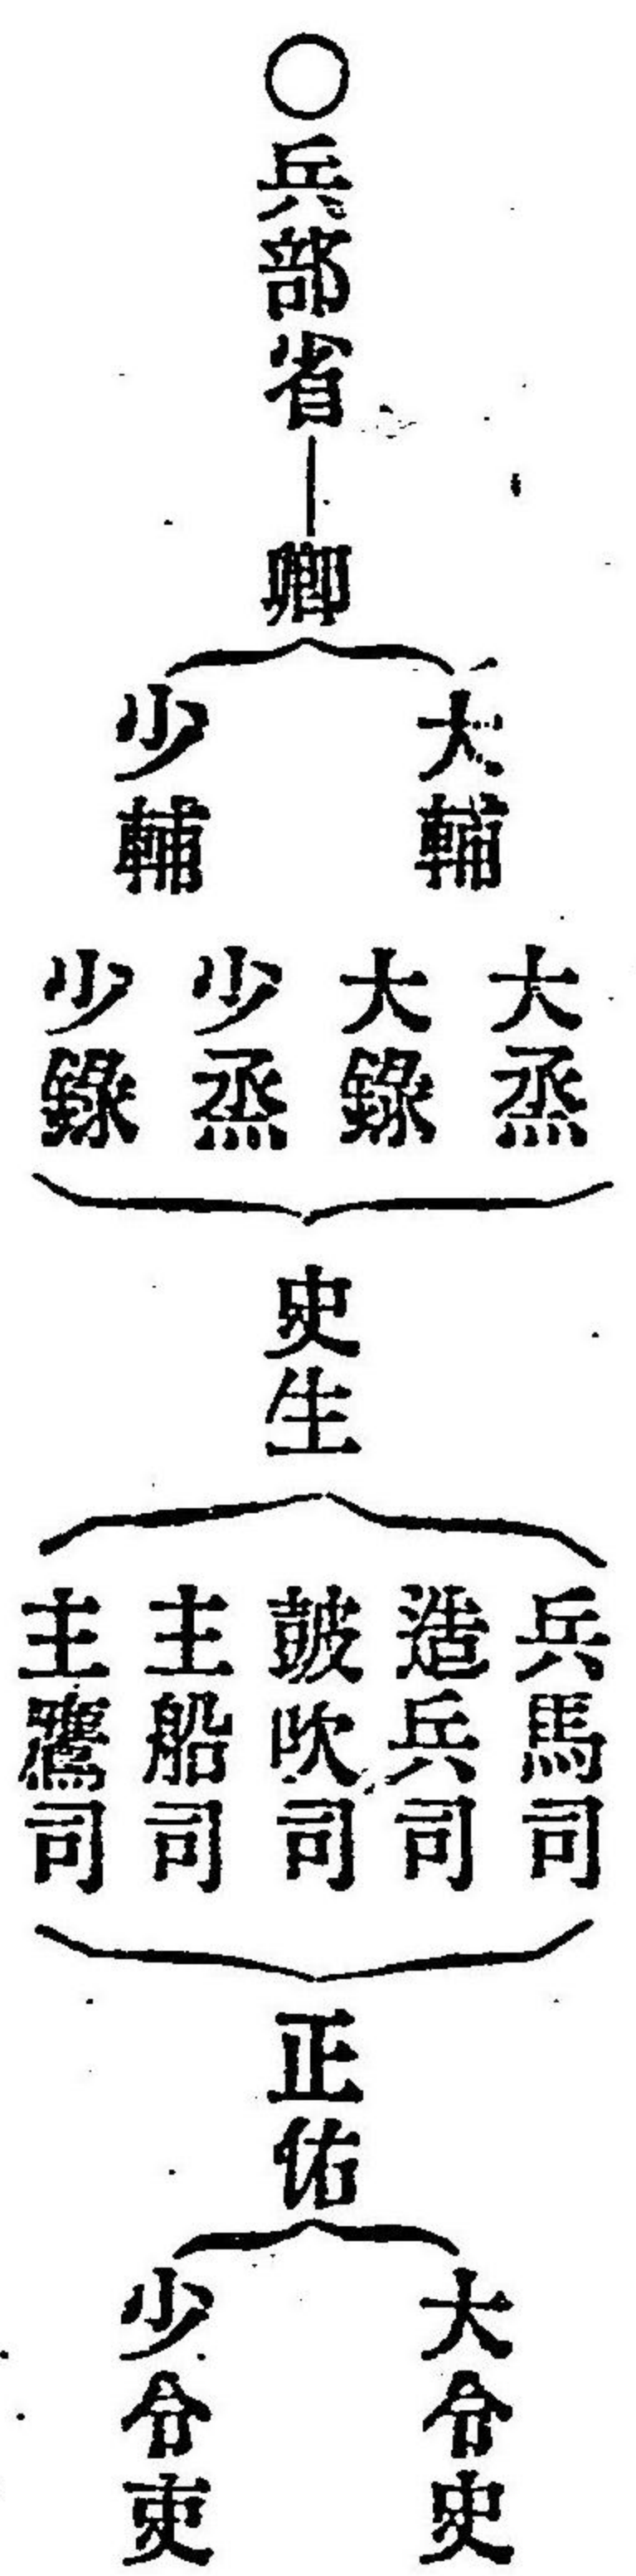 〇兵部省
卿
大輔
少輔
大丞
大錄
少丞
少錄
史生
兵馬司
造兵司
鼓吹司
主船司
主鷹司
正佑
大令史
少令吏